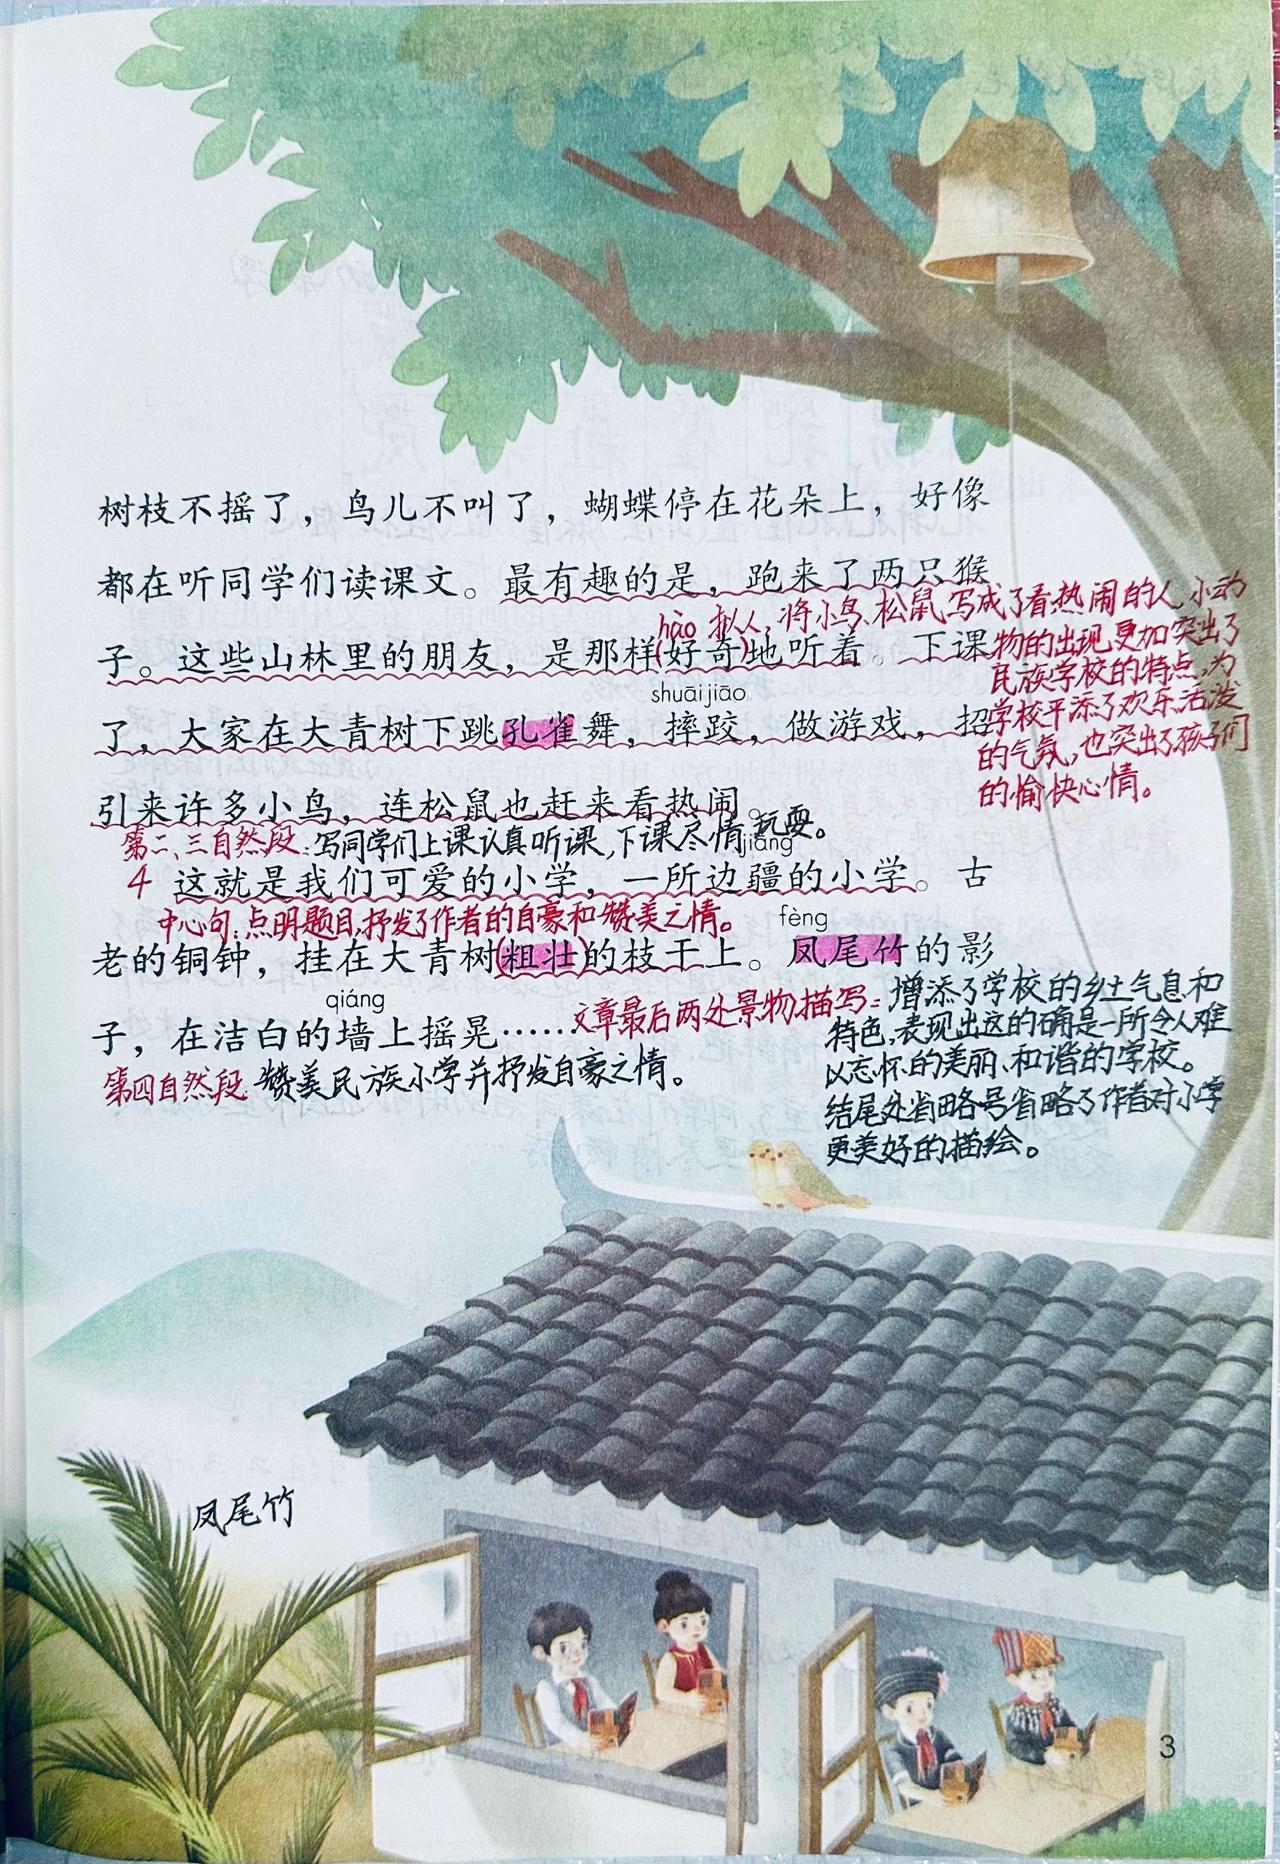 树枝不摇了，鸟儿不叫了，蝴蝶停在花朵上，好像
都在听同学们读课文。最有趣的是，跑来了两只猴
hào 拟人，将小鸟、松鼠写成了看热闹的人，小动
子。这些山林里的朋友，是那样(好奇)地听着。下课
物的出现，更加突出了
民族学校的特点，为
shuāi jiāo
了，大家在大青树下跳孔雀舞，摔跤，做游戏，招
学校平添了欢乐活泼
的气氛，也突出了孩子们
的愉快心情。
引来许多小鸟，连松鼠也赶来看热闹。
第二、三自然段：写同学们上课认真听课，下课尽情玩耍。
jiāng
4 这就是我们可爱的小学，一所边疆的小学。古
中心句：点明题目，抒发了作者的自豪和赞美之情。
fèng
老的铜钟，挂在大青树(粗壮)的枝干上。凤尾竹的影
qiáng
子，在洁白的墙上摇晃……
文章最后两处景物描写：增添了学校的乡土气息和
特色，表现出这的确是一所令人难
以忘怀的美丽、和谐的学校。
结尾处省略号省略了作者对小学
更美好的描绘。
第四自然段：赞美民族小学并抒发自豪之情。
凤尾竹
3